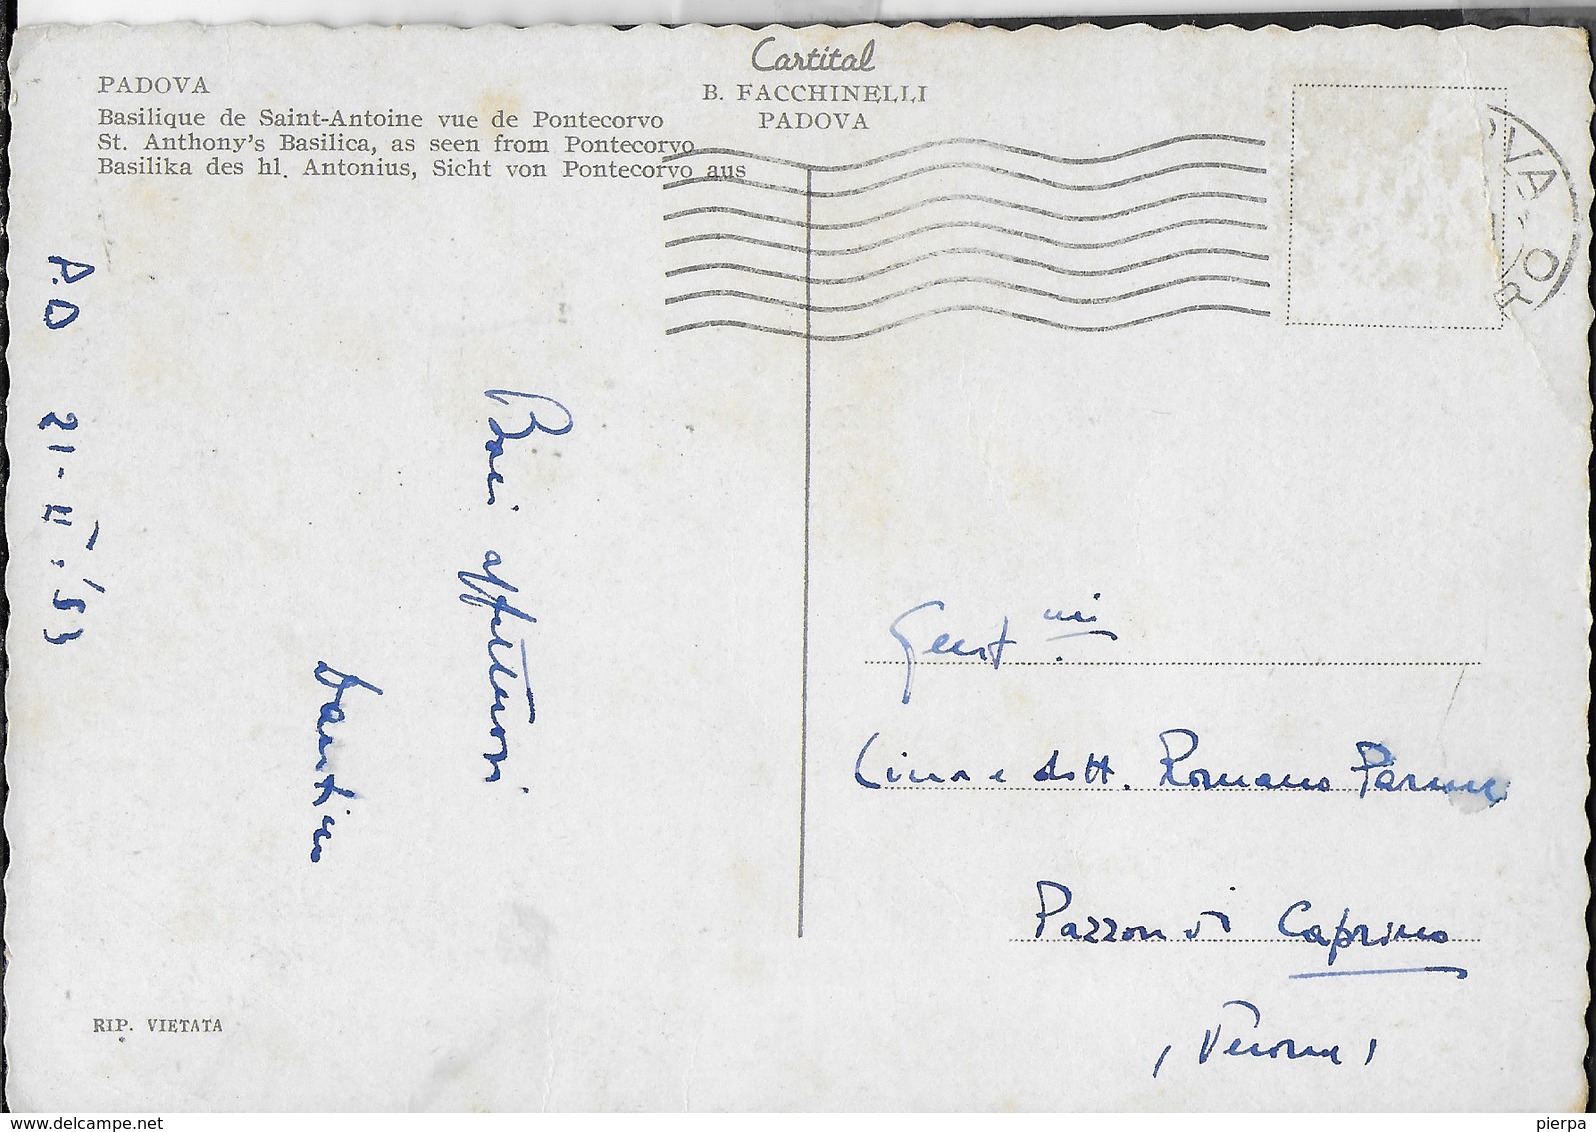 Cartital
B. FACCHINELLI
PADOVA
PADOVA
Basilique de Saint-Antoine vue de Pontecorvo
St. Anthony's Basilica, as seen from Pontecorvo
Basilika des hl. Antonius, Sicht von Pontecorvo aus
OVA-O
21-II-'53
Baci affettuosi
Gent.mi
Lina e dott. Romano
Pazzon di Caprino
(Verona)
RIP. VIETATA
www.delcampe.net
pierpa